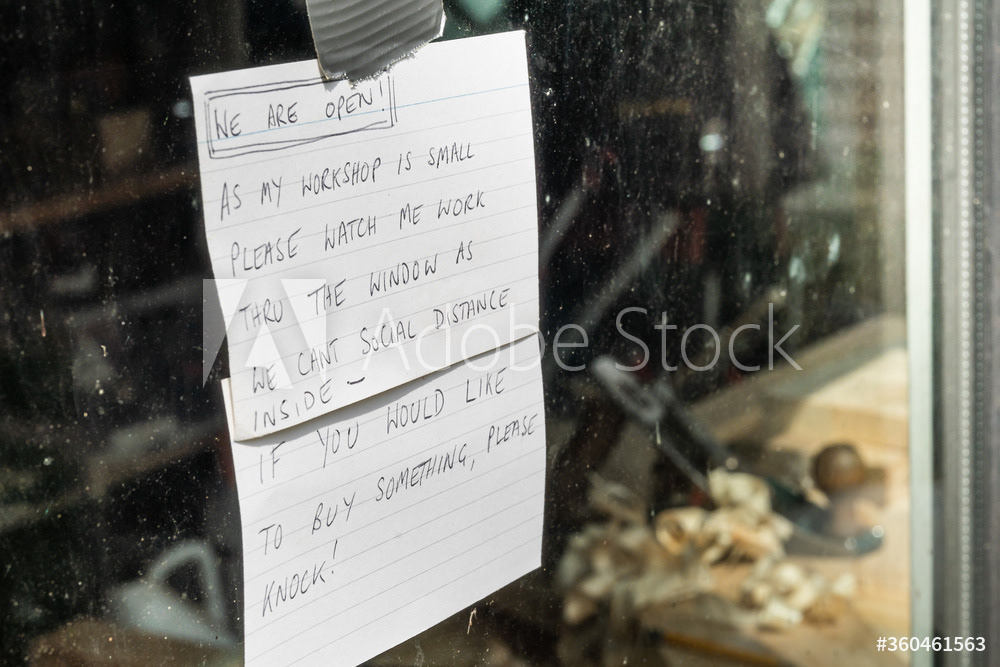 WE ARE OPEN!
AS MY WORKSHOP IS SMALL
PLEASE WATCH ME WORK
THRU THE WINDOW AS
WE CANT SOCIAL DISTANCE
INSIDE -
IF YOU WOULD LIKE
TO BUY SOMETHING, PLEASE
KNOCK!
Adobe Stock
#360461563